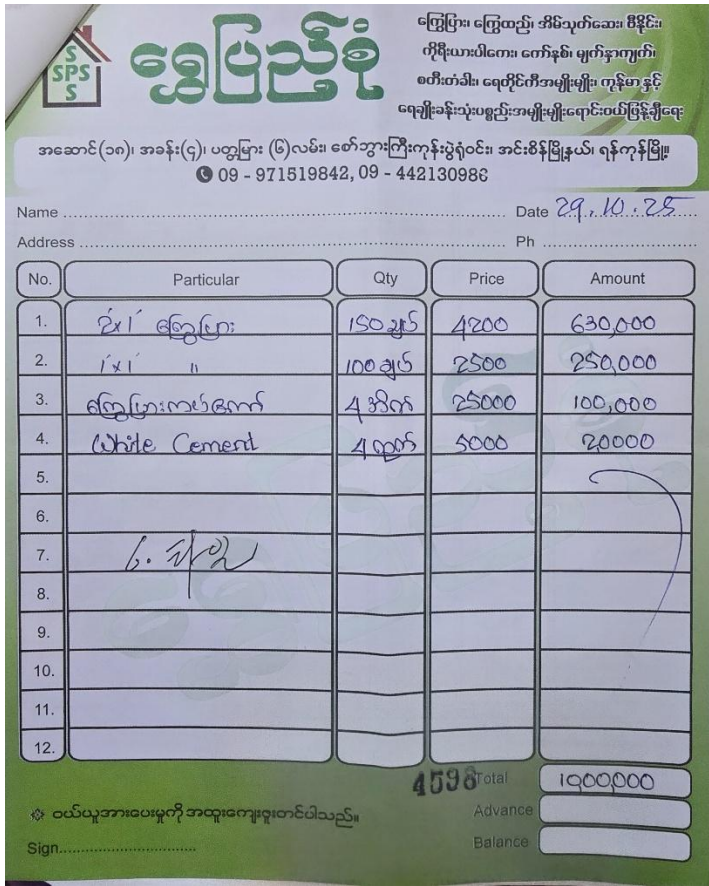 SPS
SPS
ရွှေပြည့်စုံ
ကြွေပြား၊ ကြွေထည်၊ အိမ်သုတ်ဆေး၊ စီနိုင်း၊
ကိုရီးယားပါကေး၊ ကော်နစ်၊ မျက်နှာကျက်၊
စတီးတံခါး၊ ရေတိုင်ကီအမျိုးမျိုး၊ ကုန်မာနှင့်
ရေချိုးခန်းသုံးပစ္စည်းအမျိုးမျိုးရောင်းဝယ်ဖြန့်ချိရေး
အဆောင်(၁၈)၊ အခန်း(၄)၊ ပတ္တမြား (၆)လမ်း၊ စော်ဘွားကြီးကုန်းပွဲရုံဝင်း၊ အင်းစိန်မြို့နယ်၊ ရန်ကုန်မြို့။
09 - 971519842, 09 - 442130986
Name Date 29.10.25
Address Ph
No. Particular Qty Price Amount
1. 2'x1' ကြွေပြား 150 ချပ် 4200 630,000
2. 1'x1' " 100 ချပ် 2500 250,000
3. ကြွေပြားကပ်ကော် 4 အိတ် 25000 100,000
4. White Cement 4 ထုတ် 5000 20000
5.
6.
7.
8.
9.
10.
11.
12.
4598 Total 1000000
ဝယ်ယူအားပေးမှုကို အထူးကျေးဇူးတင်ပါသည်။ Advance
Sign Balance